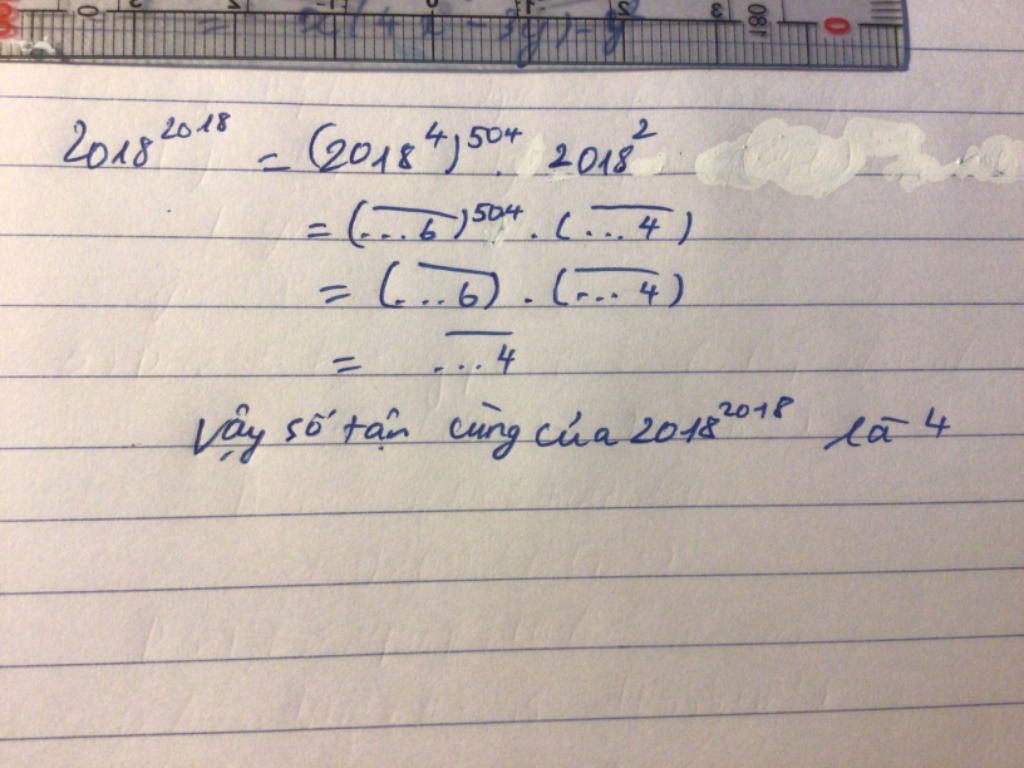 2018^2018 = (2018^4)^504 . 2018^2
= (\overline{...6})^504 . (\overline{...4})
= (\overline{...6}) . (\overline{...4})
= \overline{...4}
Vậy số tận cùng của 2018^2018 là 4